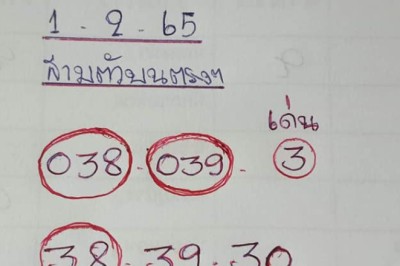 1 - 2 - 65
สามตัวบนตรงๆ
เด่น
038 - 039 - 3
38 - 39 - 30